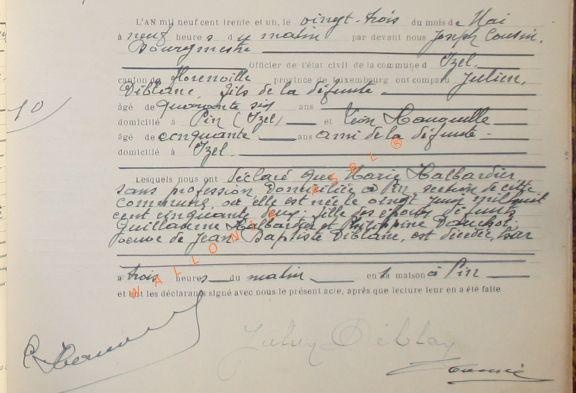 10
L'AN mil neuf cent trente et un, le vingt-trois du mois de Mai
à neuf heures du matin par devant nous Joseph Cousin,
Bourgmestre
Officier de l'état civil de la commune d'Izel
canton de Florenville, province de Luxembourg ont comparu Julien
Diblaine, fils de la défunte
âgé de quarante six ans
domicilié à Pin (Izel) et Léon
âgé de cinquante ans ami de la défunte -
domicilié à Izel
Lesquels nous ont déclaré que Marie Halbardier
sans profession domiciliée à Pin, section de cette
commune, où elle est née le vingt juin mil huit
cent cinquante deux, fille des époux défunts
Guillaume Halbardier et Philippine
veuve de Jean Baptiste Diblaine, est décédée hier
à trois heures du matin en sa maison à Pin
et ont les déclarants signé avec nous le présent acte, après que lecture leur en a été faite
WALLONIA ASBL ®